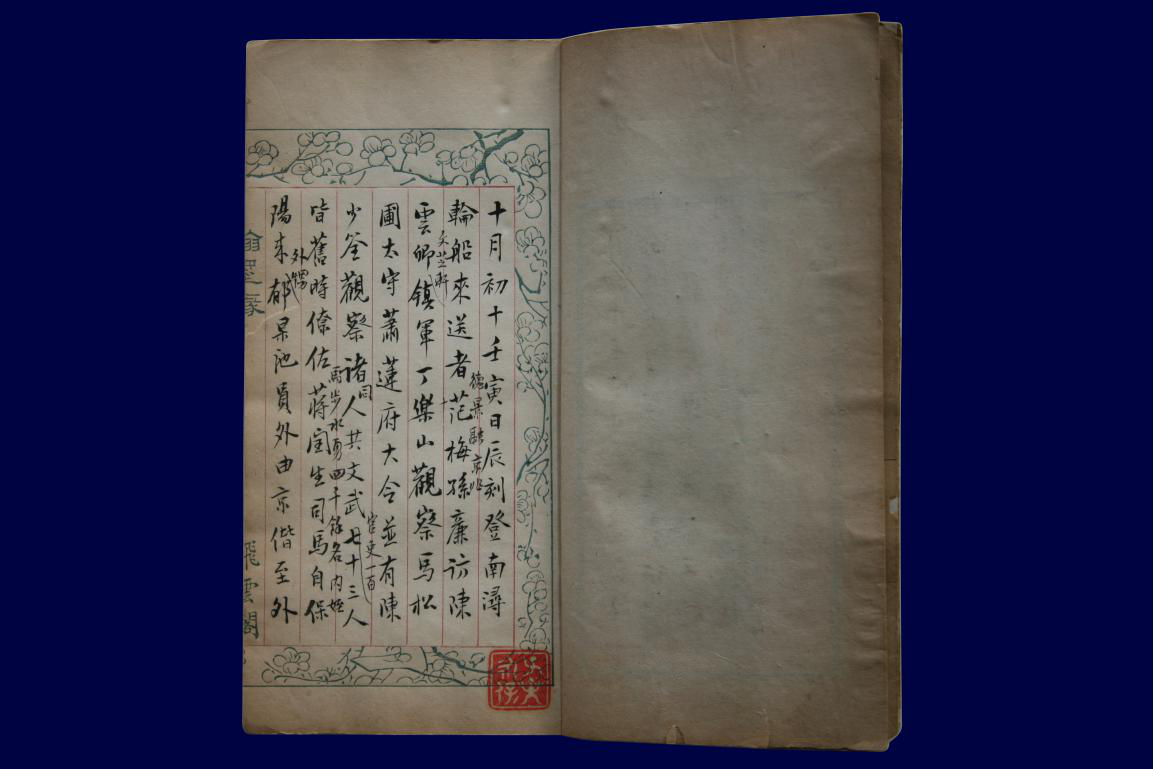 十月初十壬寅日辰刻登南潯
德景融京兆
輪船來送者范梅孫廉訪陳
文芝軒
雲卿鎮軍丁樂山觀察馬松
圃太守蕭蓮府大令並有陳
官吏一百
少荃觀察諸人共文武七十三人
同
馬步水勇四千餘名內姪
皆舊時僚佐蔣閏生司馬自保
外甥
陽來郁杲池員外由京偕至外
翰墨緣
飛雲閣